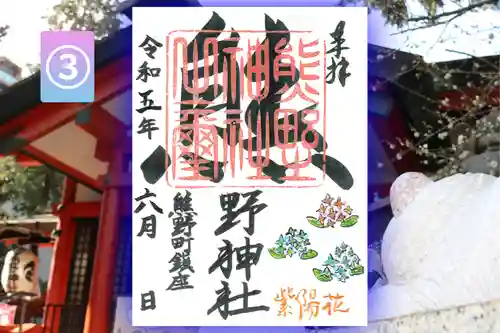 ③
奉拝
熊
野神社
熊野町鎮座
令和五年 六月 日
熊野
神社
紫陽花